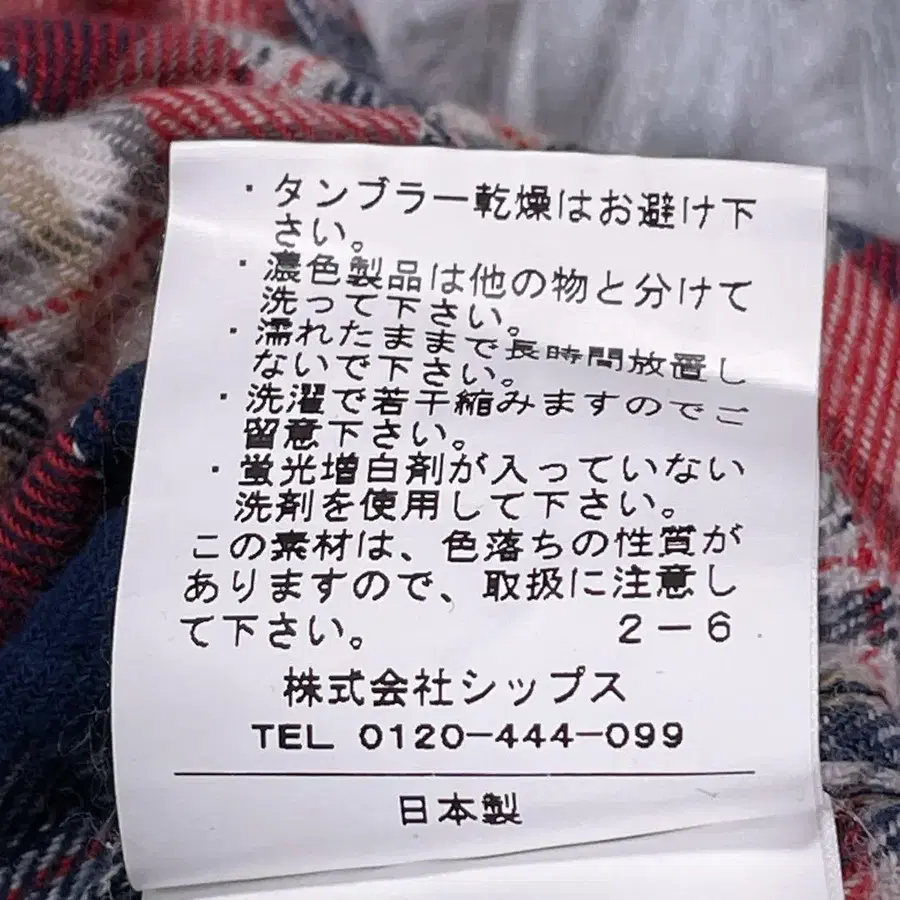 ・タンブラー乾燥はお避け下
さい。
・濃色製品は他の物と分けて
洗って下さい。
・濡れたままで長時間放置し
ないで下さい。
・洗濯で若干縮みますのでご
留意下さい。
・蛍光増白剤が入っていない
洗剤を使用して下さい。
この素材は、色落ちの性質が
ありますので、取扱に注意し
て下さい。 2-6
株式会社シップス
TEL 0120-444-099
日本製